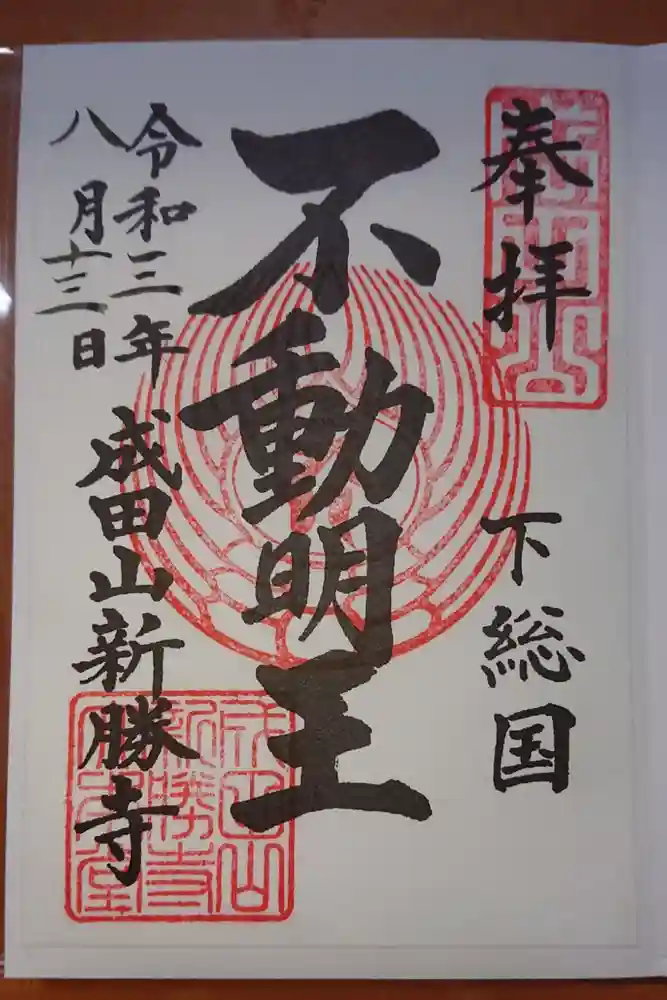 奉拝
下総国
不動明王
令和三年
八月十三日
成田山新勝寺
成田山
新勝寺